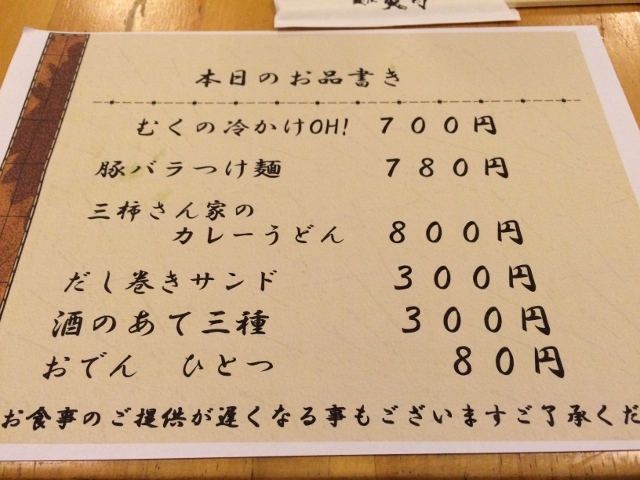 本日のお品書き
むくの冷かけOH! 700円
豚バラつけ麺 780円
三柿さん家の
カレーうどん 800円
だし巻きサンド 300円
酒のあて三種 300円
おでん ひとつ 80円
お食事のご提供が遅くなる事もございますご了承くだ